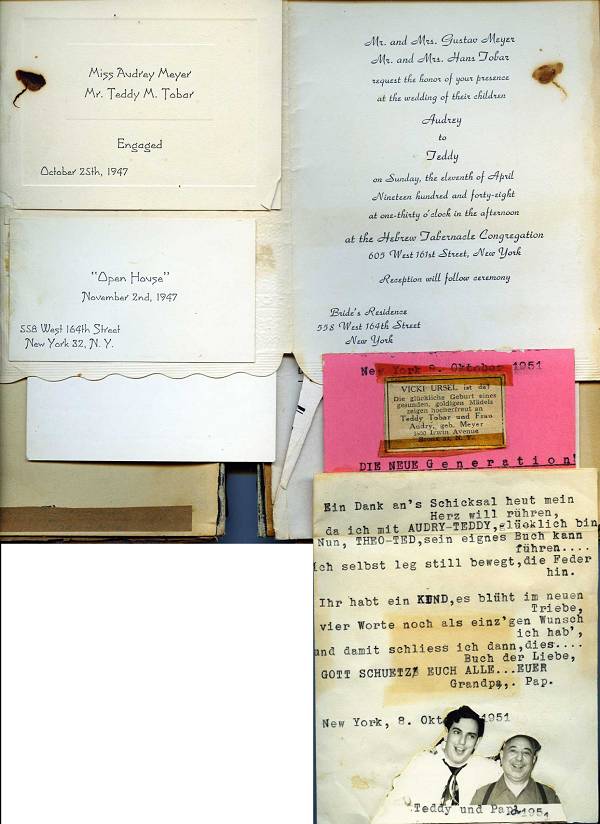 Miss Audrey Meyer
Mr. Teddy M. Tobar
Engaged
October 25th, 1947
"Open House"
November 2nd, 1947
558 West 164th Street
New York 32, N. Y.
Mr. and Mrs. Gustav Meyer
Mr. and Mrs. Hans Tobar
request the honor of your presence
at the wedding of their children
Audrey
to
Teddy
on Sunday, the eleventh of April
Nineteen hundred and forty-eight
at one-thirty o'clock in the afternoon
at the Hebrew Tabernacle Congregation
605 West 161st Street, New York
Reception will follow ceremony
Bride's Residence
558 West 164th Street
New York
New York 8. Oktober 1951
VICKI URSEL ist da!
Die glückliche Geburt eines
gesunden, goldigen Mädels
zeigen hocherfreut an
Teddy Tobar und Frau
Audry, geb. Meyer
Irwin Avenue
Bronx N. Y.
DIE NEUE Generation!
Ein Dank an's Schicksal heut mein
Herz will rühren,
da ich mit AUDRY-TEDDY,glücklich bin
Nun, THEO-TED,sein eignes Buch kann
führen....
ich selbst leg still bewegt,die Feder
hin.
Ihr habt ein KIND,es blüht im neuen
Triebe,
vier Worte noch als einz'gen Wunsch
ich hab',
und damit schliess ich dann,dies....
Buch der Liebe,
GOTT SCHUETZE EUCH ALLE...EUER
Grandpa,. Pap.
New York, 8. Okt 1951
Teddy und Papi
1951